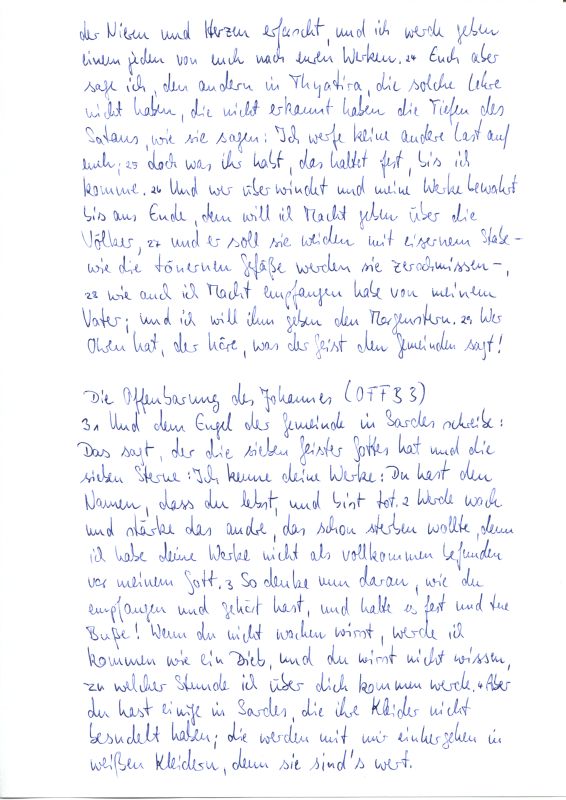 der Nieren und Herzen erforscht, und ich werde geben
einem jeden von euch nach euren Werken. 24 Euch aber
sage ich, den andern in Thyatira, die solche Lehre
nicht haben, die nicht erkannt haben die Tiefen des
Satans, wie sie sagen: Ich werfe keine andere Last auf
euch; 25 doch was ihr habt, das haltet fest, bis ich
komme. 26 Und wer überwindet und meine Werke bewahrt
bis ans Ende, dem will ich Macht geben über die
Völker, 27 und er soll sie weiden mit eisernem Stabe –
wie die tönernen Gefäße werden sie zerschmissen –,
28 wie auch ich Macht empfangen habe von meinem
Vater; und ich will ihm geben den Morgenstern. 29 Wer
Ohren hat, der höre, was der Geist den Gemeinden sagt!

Die Offenbarung des Johannes (OFFB 3)
3,1 Und dem Engel der Gemeinde in Sardes schreibe:
Das sagt, der die sieben Geister Gottes hat und die
sieben Sterne: Ich kenne deine Werke: Du hast den
Namen, dass du lebst, und bist tot. 2 Werde wach
und stärke das andre, das schon sterben wollte, denn
ich habe deine Werke nicht als vollkommen befunden
vor meinem Gott. 3 So denke nun daran, wie du
empfangen und gehört hast, und halte es fest und tue
Buße! Wenn du nicht wachen wirst, werde ich
kommen wie ein Dieb, und du wirst nicht wissen,
zu welcher Stunde ich über dich kommen werde. 4 Aber
du hast einige in Sardes, die ihre Kleider nicht
besudelt haben; die werden mit mir einhergehen in
weißen Kleidern, denn sie sind's wert.